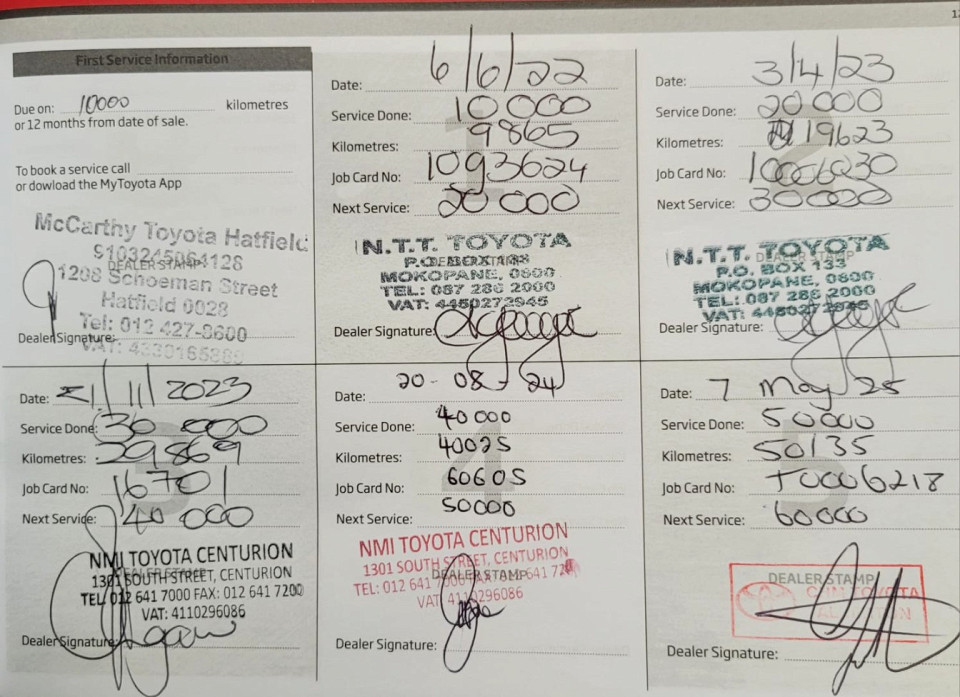 12
First Service Information
Due on: 10000 kilometres
or 12 months from date of sale.
To book a service call
or dowload the MyToyota App
McCarthy Toyota Hatfield
DEALER STAMP
1208 Schoeman Street
Hatfield 0028
Tel: 012 427-8600
Dealer Signature:
Date: 6/6/22
Service Done: 10 000
Kilometres: 9865
Job Card No: 1093624
Next Service: 20 000
N.T.T. TOYOTA
MOKOPANE, 0600
TEL: 087 286 2000
VAT: 4450272945
Dealer Signature:
Date: 3/4/23
Service Done: 20 000
Kilometres: 19623
Job Card No:
Next Service: 30000
N.T.T. TOYOTA
P.O. BOX 133
MOKOPANE, 0600
TEL: 087 286 2000
VAT: 4450272945
Dealer Signature:
Date: 21/11/2023
Service Done: 30 000
Kilometres: 29869
Job Card No: 16701
Next Service: 40 000
NMI TOYOTA CENTURION
1301 SOUTH STREET, CENTURION
TEL: 012 641 7000 FAX: 012 641 7200
VAT: 4110296086
Dealer Signature:
Date: 20-08-24
Service Done: 40000
Kilometres: 40025
Job Card No: 60605
Next Service: 50000
NMI TOYOTA CENTURION
1301 SOUTH STREET, CENTURION
TEL: 012 641 7000 DEALER STAMP 641 7200
VAT 4110296086
Dealer Signature:
Date: 7 May 25
Service Done: 50000
Kilometres: 50135
Job Card No: T0006218
Next Service: 60000
DEALER STAMP
TOYOTA
Dealer Signature: